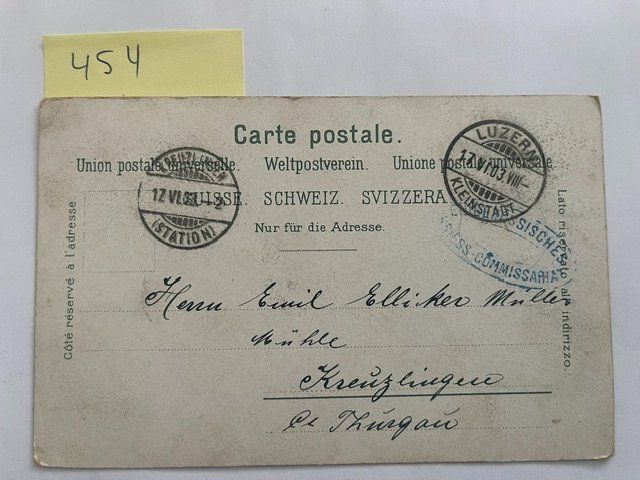 454
Carte postale.
Union postale universelle. Weltpostverein. Unione postale universale
SUISSE. SCHWEIZ. SVIZZERA.
Nur für die Adresse.
Côté réservé à l'adresse.
Lato riservato all' indirizzo.
KREUZLINGEN
17.VI.03
(STATION)
LUZERN
VI.03 VIII
KLEINSTADT
COMMISSARIAT
Herrn Emil Elliker Müller
Mühle
Kreuzlingen
Ct Thurgau